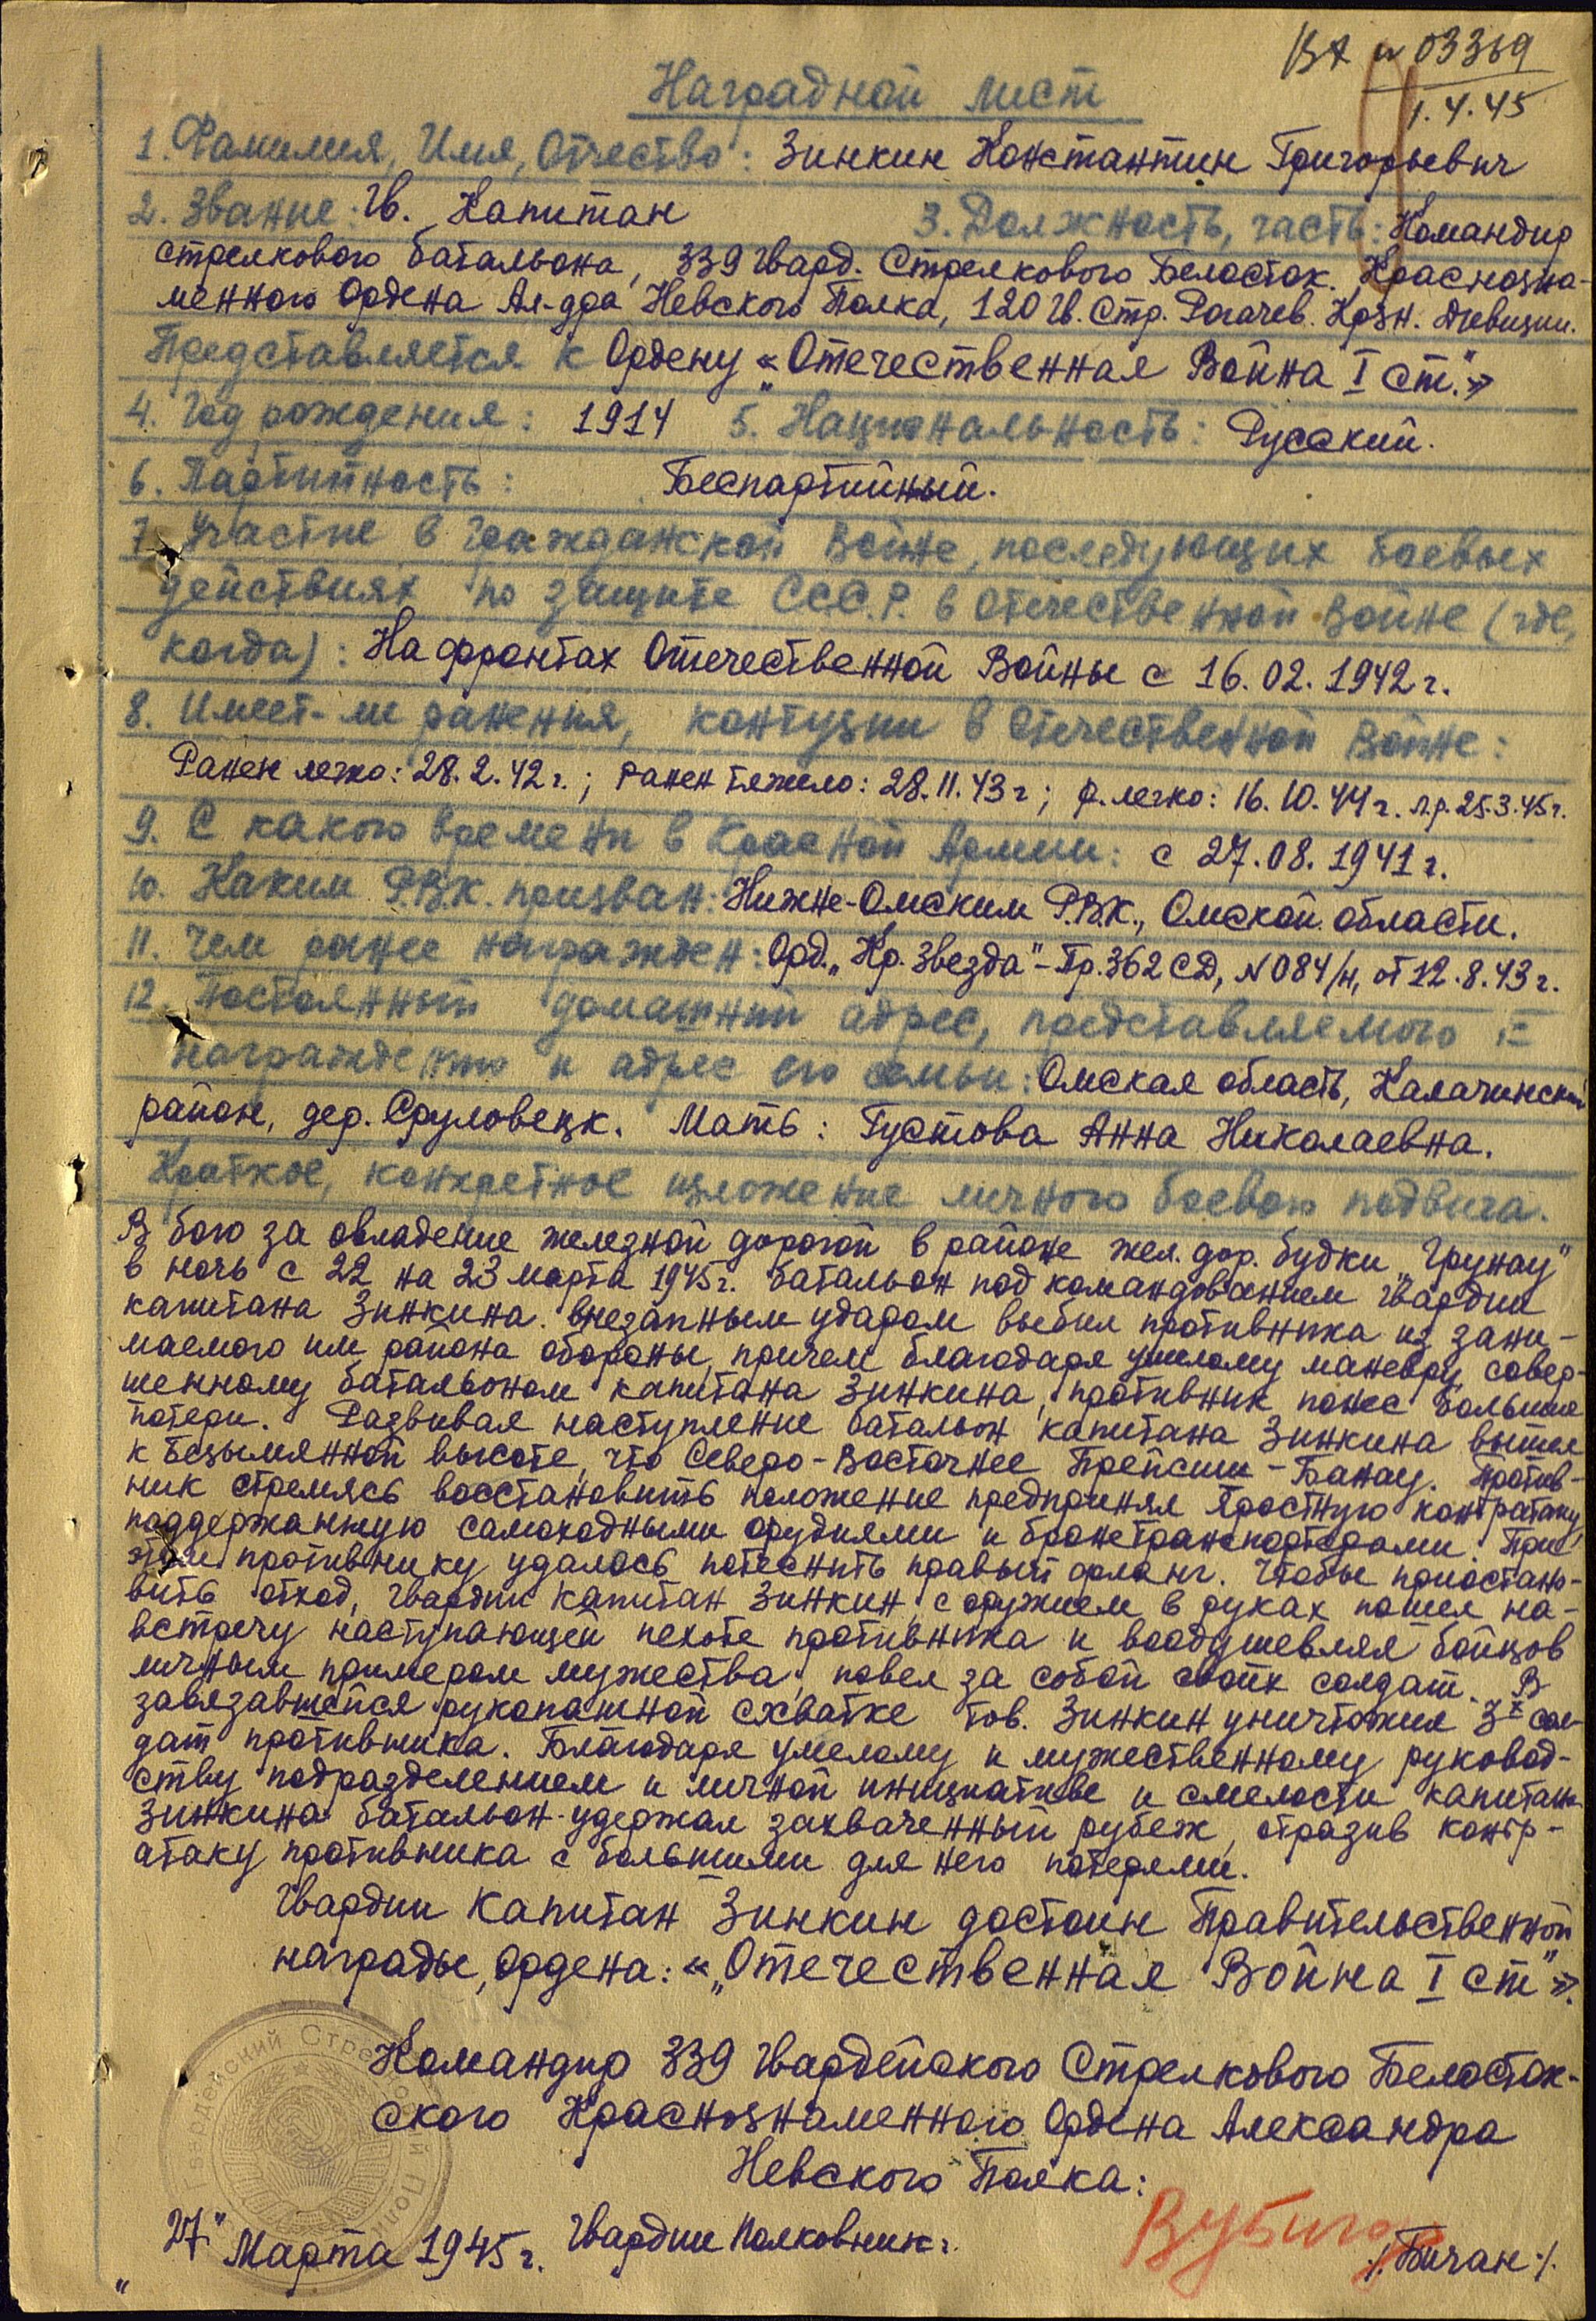 ВХ № 03369
1.4.45
Наградной лист
1. Фамилия, Имя, Отчество: Зинкин Константин Григорьевич
2. Звание: Гв. Капитан 3. Должность, часть: Командир
стрелкового батальона, 339 Гвард. Стрелкового Белосток. Краснозна-
менного Ордена Ал-дра Невского Полка, 120 Гв. Стр. Рогачев. Крзн. Дивизии.
Представляется к Ордену «„Отечественная Война I ст."»
4. Год рождения: 1914 5. Национальность: Русский.
6. Партийность: Беспартийный.
7. Участие в гражданской войне, последующих боевых
действиях по защите СССР. в Отечественной войне (где,
когда): На фронтах Отечественной Войны с 16.02.1942 г.
8. Имеет-ли ранения, контузии в Отечественной войне:
Ранен легко: 28.2.42 г.; ранен тяжело: 28.11.43 г; р. легко: 16.10.44 г. л.р. 25.3.45 г.
9. С какого времени в Красной Армии: с 27.08.1941 г.
10. Каким Р.В.К. призван: Нижне-Омским Р.В.К., Омской области.
11. Чем ранее награжден: Орд. „Кр. Звезда" – Пр. 362 СД, № 084/н, от 12.8.43 г.
12. Постоянный домашний адрес, представляемого к
награждению и адрес его семьи: Омская область, Калачинский
район, дер. Сруловецк. Мать: Густова Анна Николаевна.
Краткое, конкретное изложение личного боевого подвига.
В бою за овладение железной дорогой в районе жел. дор. будки „Грунау"
в ночь с 22 на 23 марта 1945 г. батальон под командованием гвардии
капитана Зинкина. внезапным ударом выбил противника из зани-
маемого им района обороны, причем благодаря умелому маневру, совер-
шенному батальоном капитана Зинкина, противник понес большие
потери. Развивая наступление батальон капитана Зинкина вышел
к безымянной высоте, что Северо-Восточнее Прейсиш-Банау. Против-
ник стремясь восстановить положение предпринял яростную контратаку,
поддержанную самоходными орудиями и бронетранспортерами. При
этом противнику удалось потеснить правый фланг. Чтобы приостано-
вить отход, гвардии капитан Зинкин с оружием в руках пошел на-
встречу наступающей пехоте противника и воодушевляя бойцов
личным примером мужества, повел за собой своих солдат. В
завязавшейся рукопашной схватке тов. Зинкин уничтожил 3х сол-
дат противника. Благодаря умелому и мужественному руковод-
ству подразделением и личной инициативе и смелости капитана
Зинкина батальон удержал захваченный рубеж, отразив контр-
атаку противника с большими для него потерями.
Гвардии капитан Зинкин достоин Правительственной
награды, ордена: «„Отечественная Война I ст"».
Командир 339 Гвардейского Стрелкового Белосток-
ского Краснознаменного Ордена Александра
Невского Полка:
27" Марта 1945 г. Гвардии Полковник:
/.Бичан:/.
Гвардейский Стрелковой Полк